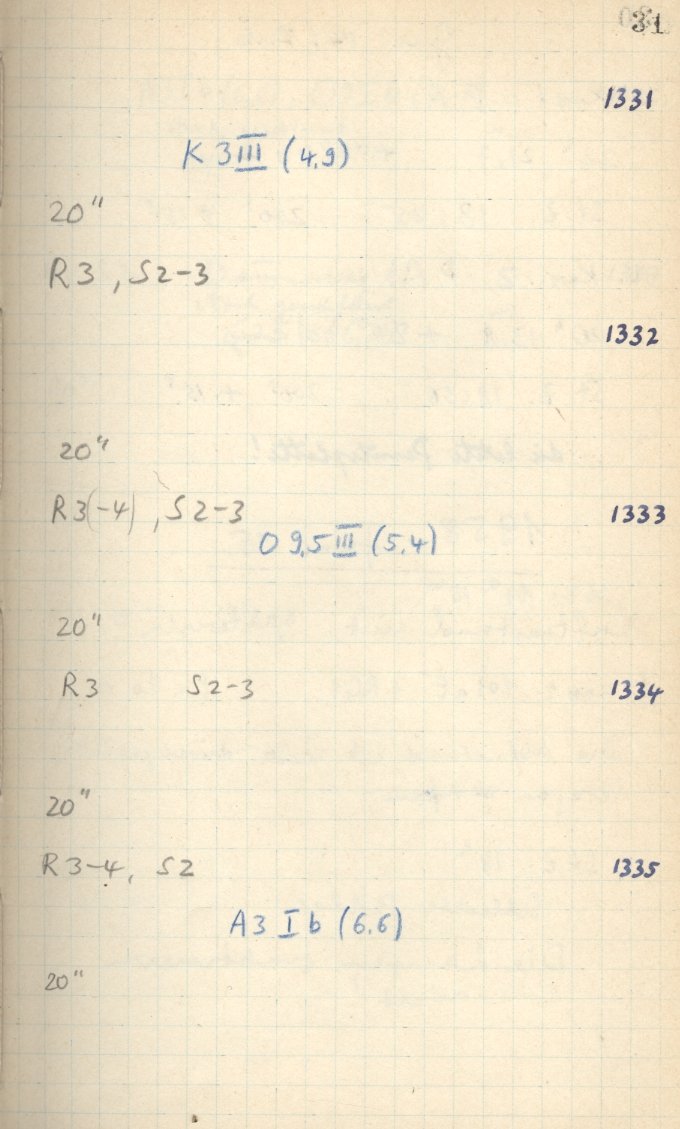 31
1331
K 3 III (4.9)
20"
R3, S2-3
1332
20"
R3(-4), S2-3
1333
O 9.5 III (5.4)
20"
R3 S2-3
1334
20"
R3-4, S2
1335
A3 I b (6.6)
20"